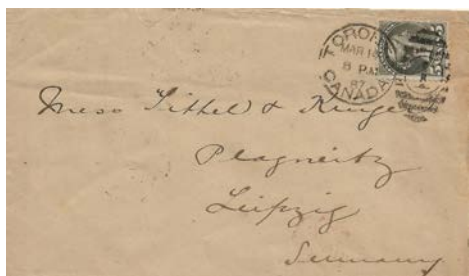 TORON
MAR 18
8 PM
87
CANADA
Mess Sithel & Kruger
Plagneitz
Leipzig
Germany